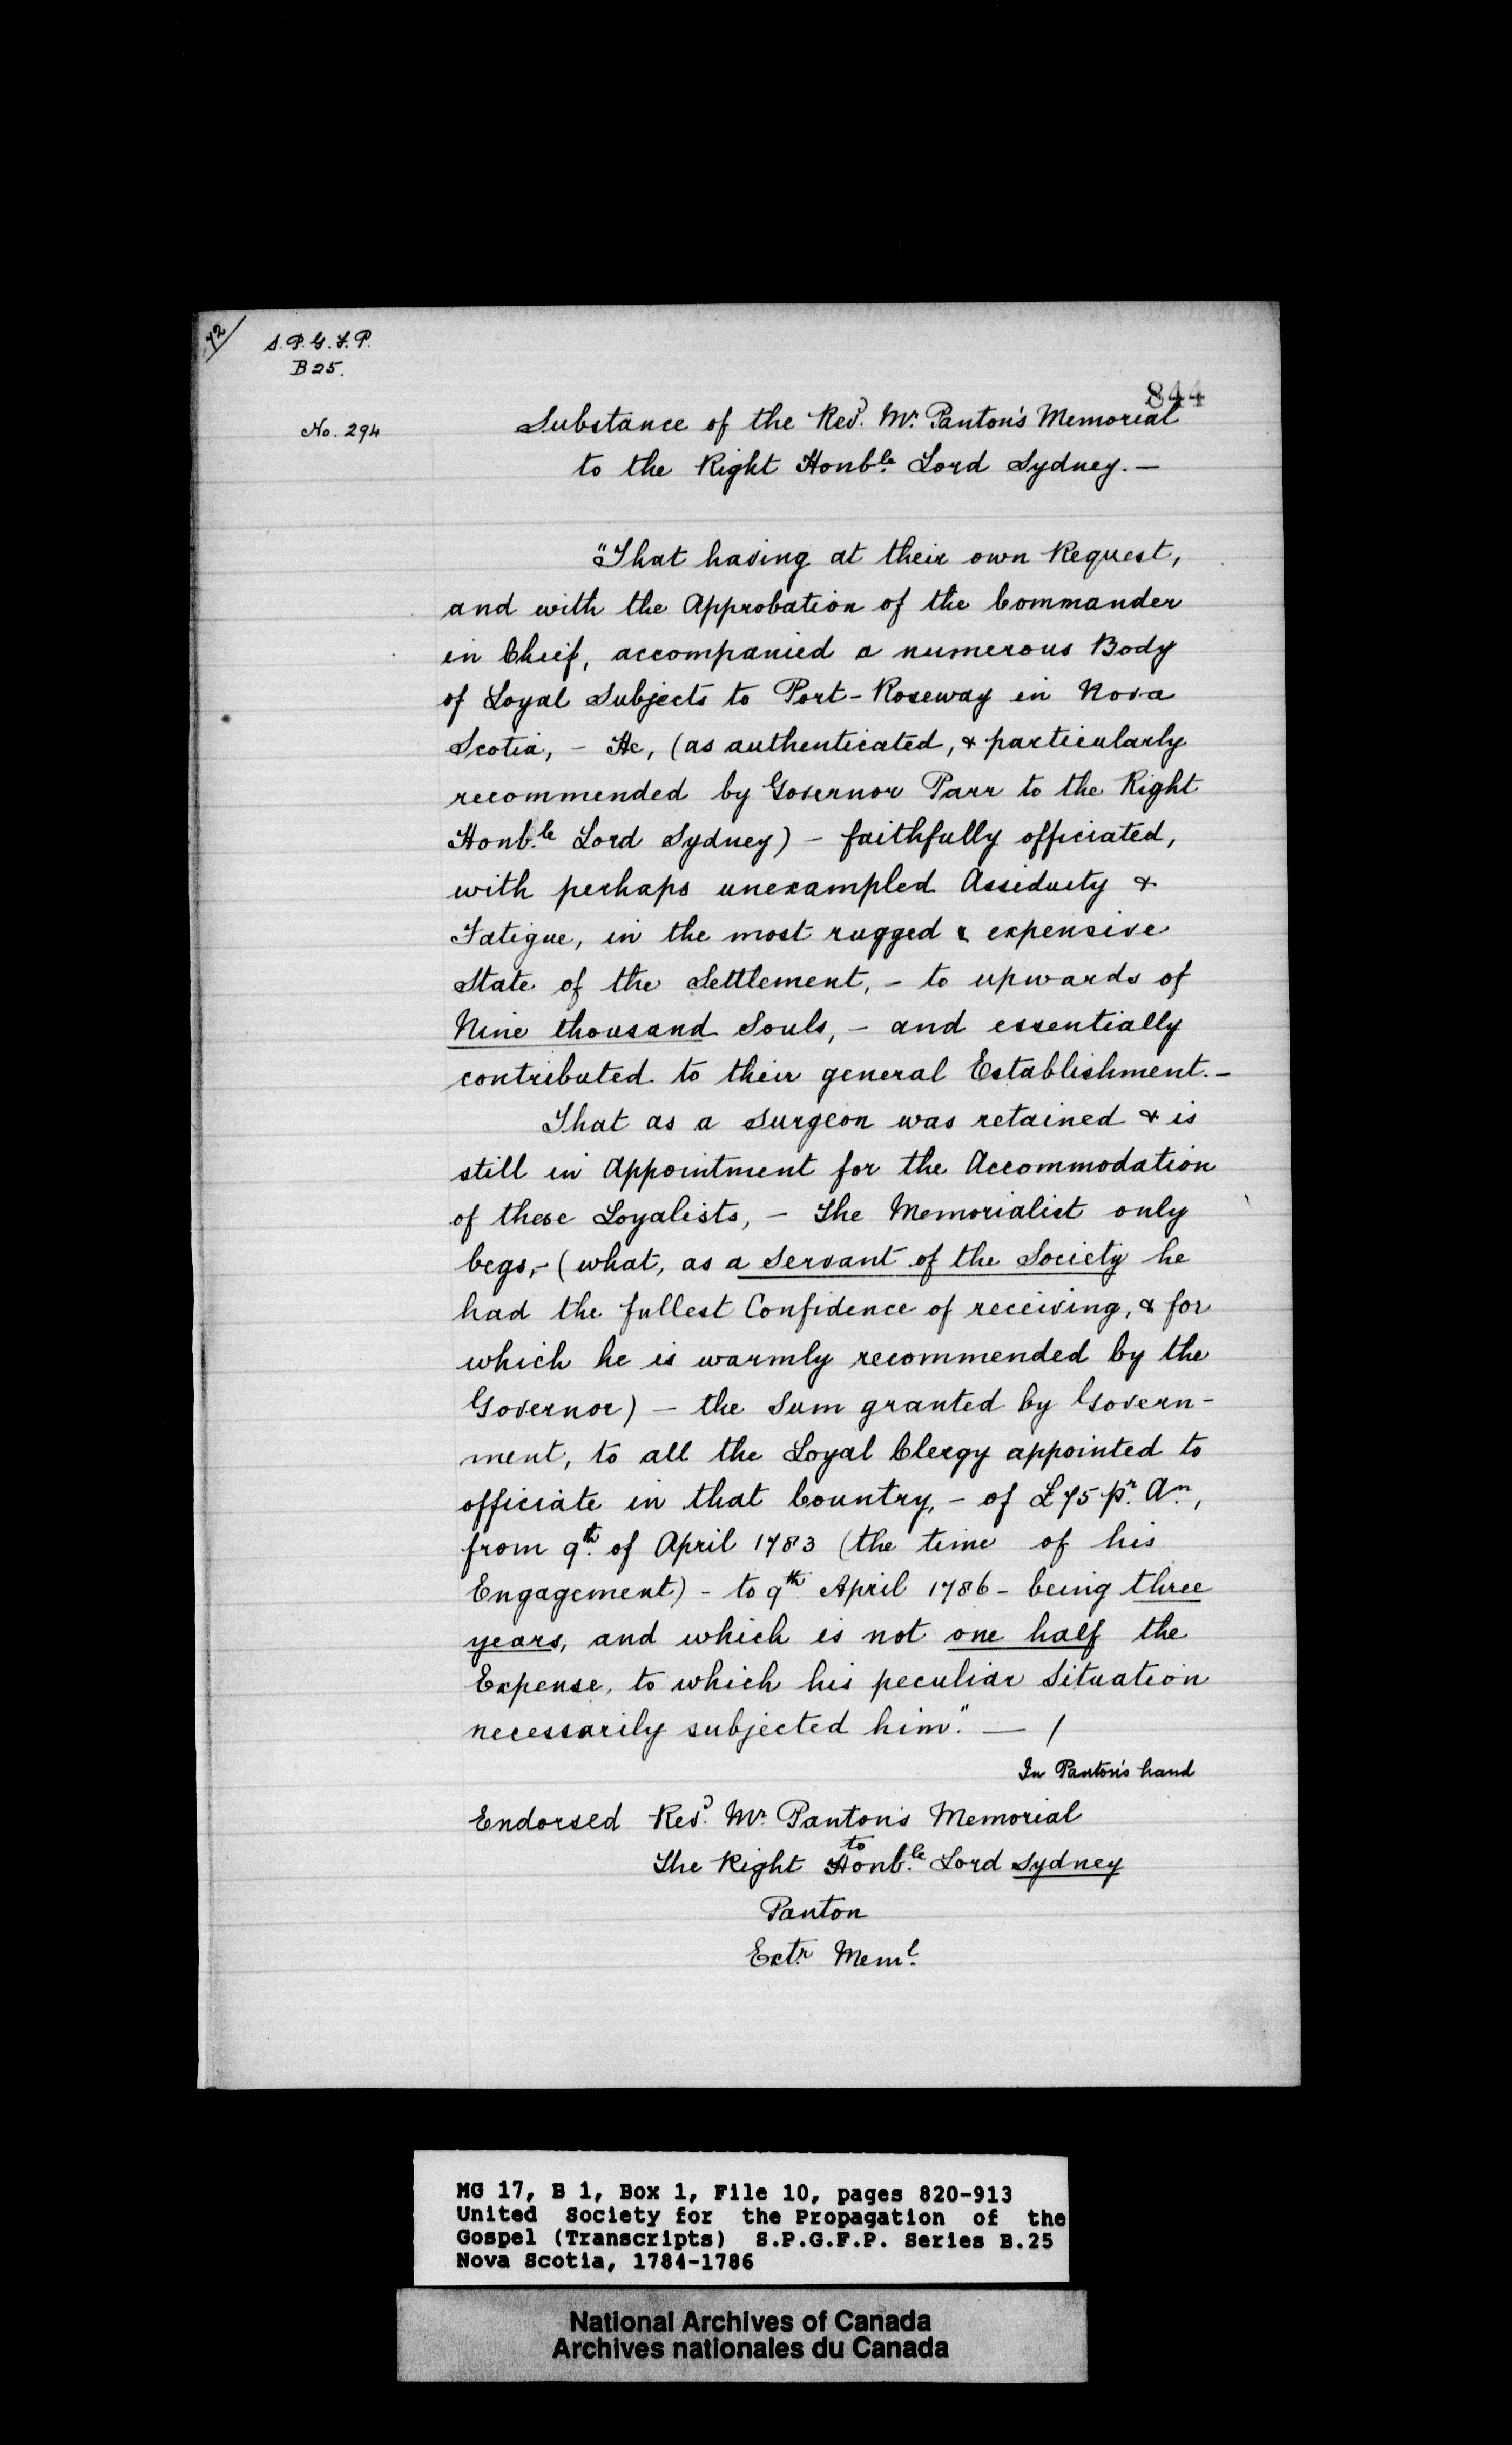 42/
S.P.G.F.P.
B 25.
844
No. 294
Substance of the Revd. Mr. Panton's Memorial
to the Right Honble. Lord Sydney. —
"That having at their own Request,
and with the Approbation of the Commander
in Chief, accompanied a numerous Body
of Loyal Subjects to Port-Roseway in Nova
Scotia, - He, (as authenticated, & particularly
recommended by Governor Parr to the Right
Honb.le Lord Sydney) - faithfully officiated,
with perhaps unexampled Assiduity &
Fatigue, in the most rugged & expensive
State of the Settlement, - to upwards of
Nine thousand Souls, - and essentially
contributed to their general Establishment. -
That as a Surgeon was retained & is
still in Appointment for the Accommodation
of these Loyalists, - The Memorialist only
begs, - (what, as a Servant of the Society he
had the fullest Confidence of receiving, & for
which he is warmly recommended by the
Governor) - the Sum granted by Govern-
ment, to all the Loyal Clergy appointed to
officiate in that Country, - of £75 pr. An.,
from 9th. of April 1783 (the time of his
Engagement) - to 9th April 1786 - being three
years, and which is not one half the
Expense, to which his peculiar Situation
necessarily subjected him." — /
In Panton's hand
Endorsed Revd. Mr. Panton's Memorial
to
The Right Honb.le Lord Sydney
Panton
Extr. Meml.
MG 17, B 1, Box 1, File 10, pages 820-913
United Society for the Propagation of the
Gospel (Transcripts) S.P.G.F.P. Series B.25
Nova Scotia, 1784-1786
National Archives of Canada
Archives nationales du Canada